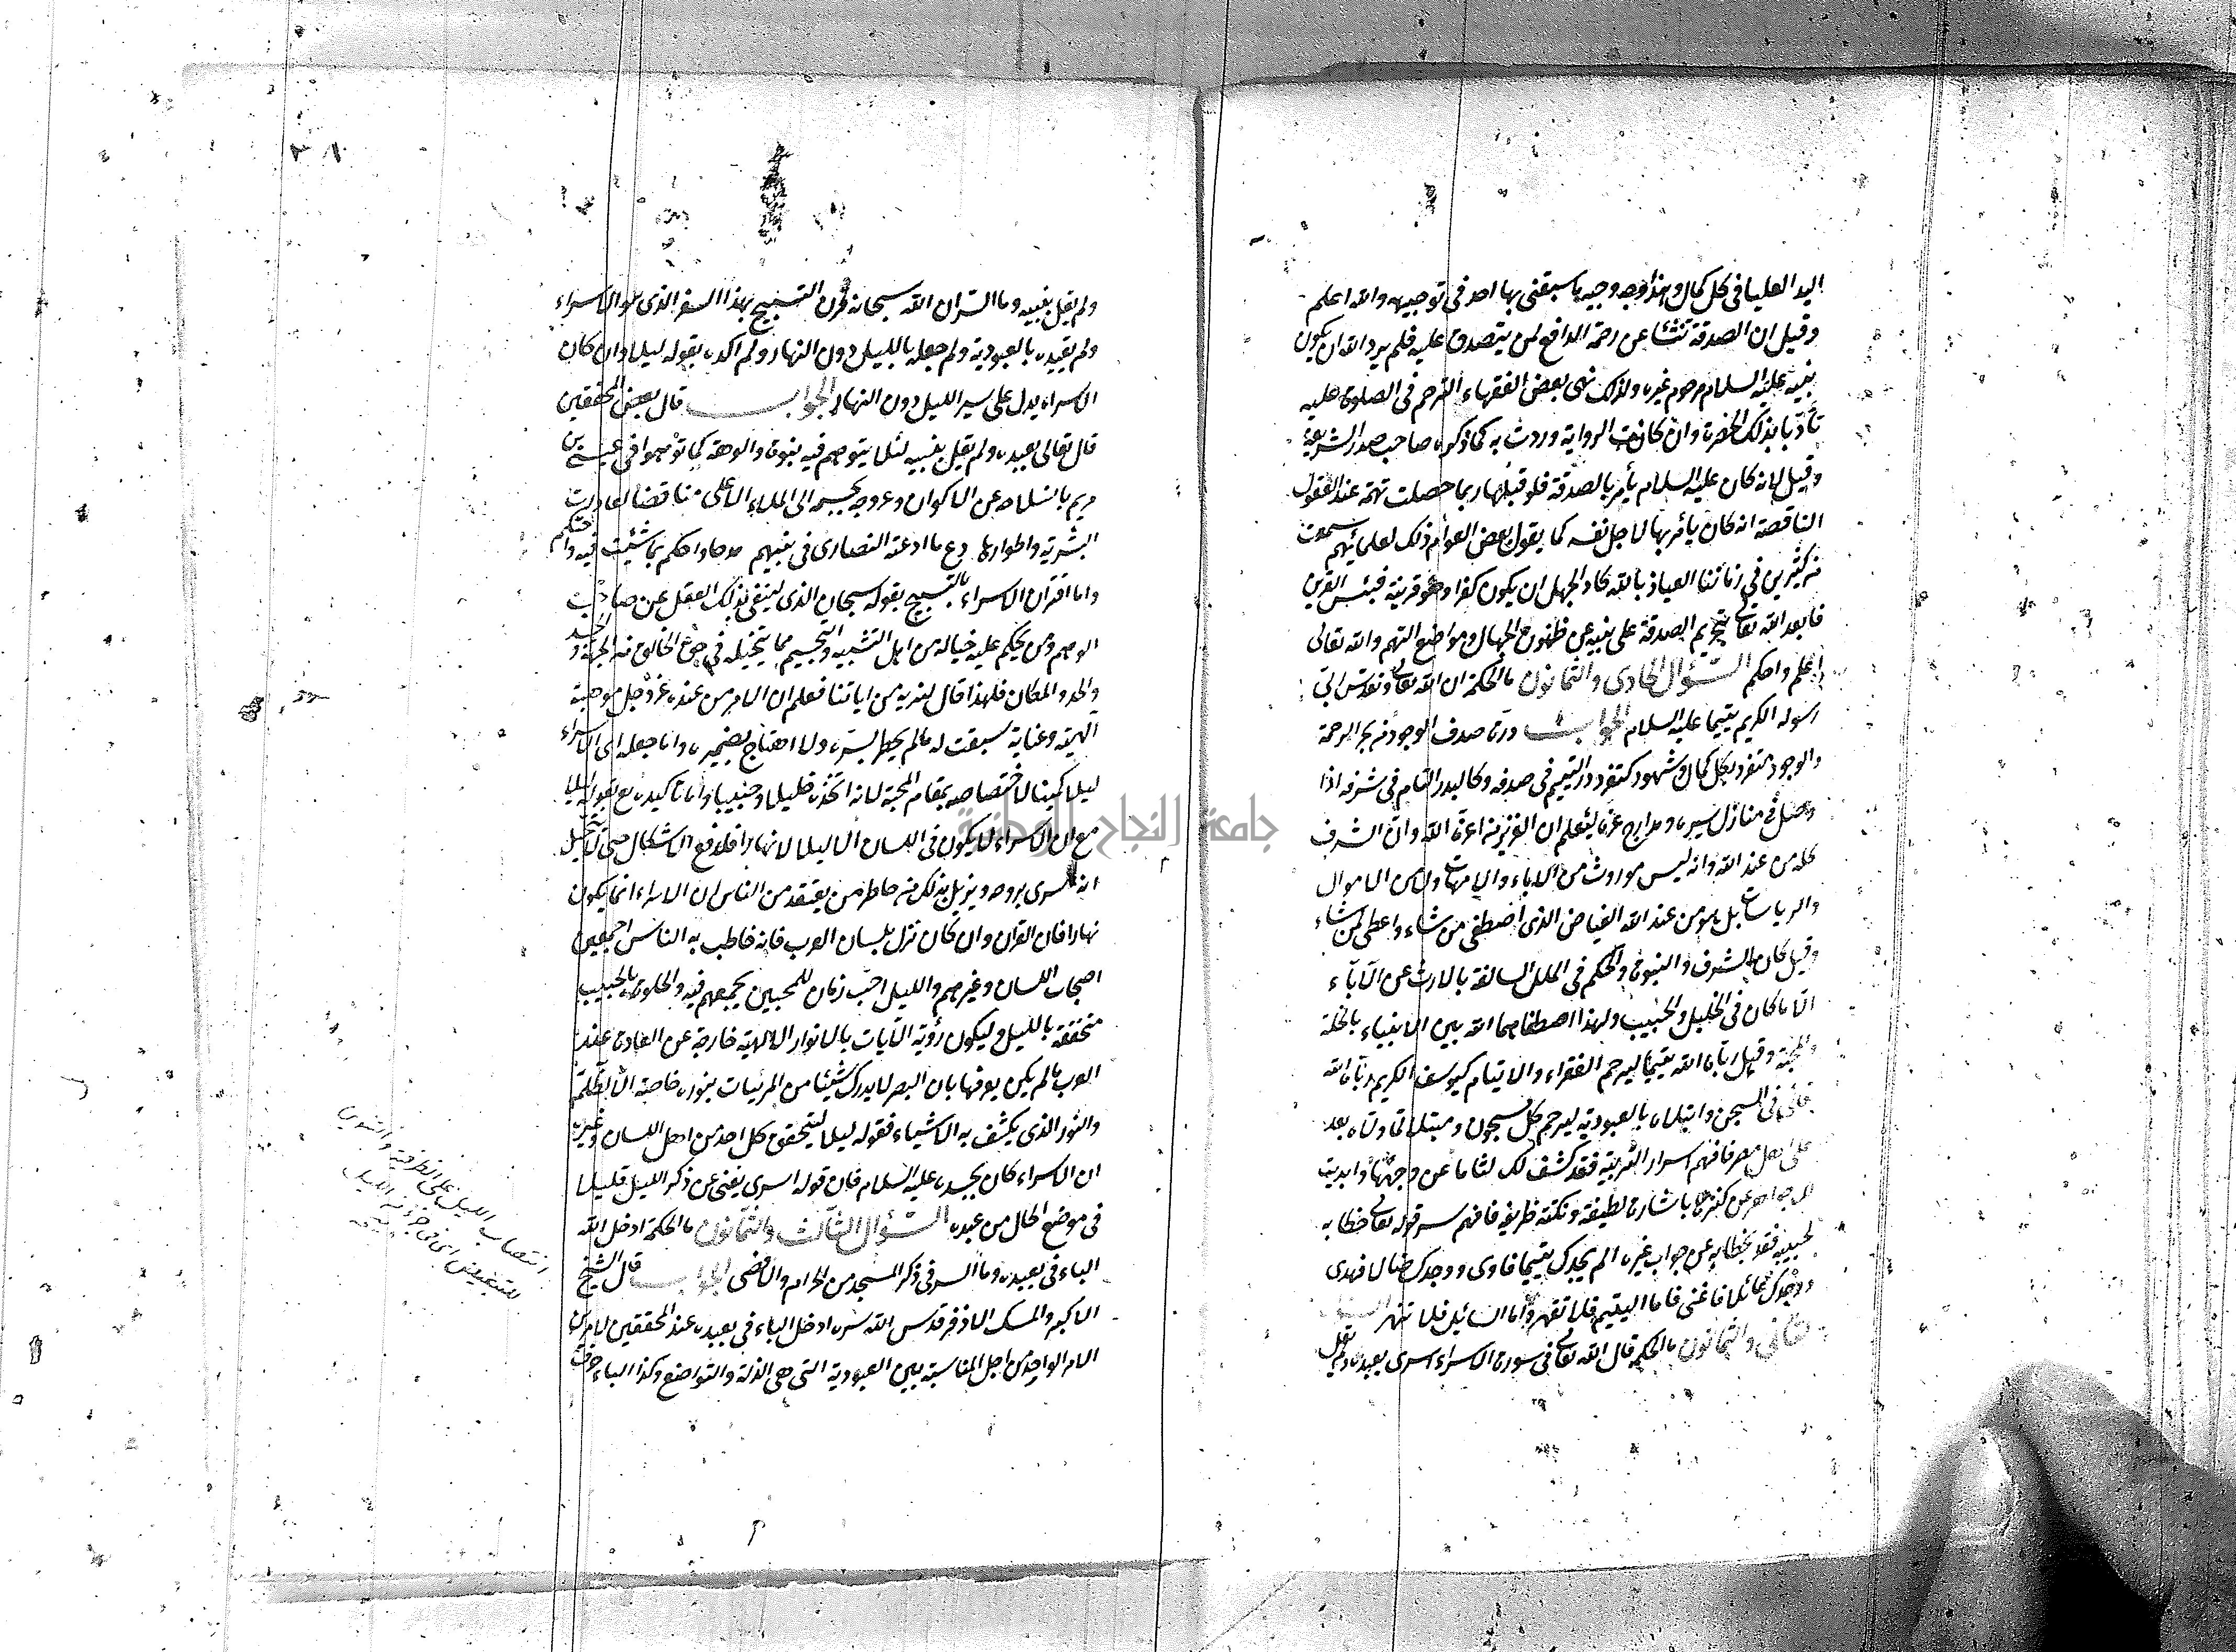 اليد العليا في كل كمال وهذا وجه وجيه ما سبقني بها احد في توجيهه والله اعلم
وقيل ان الصدقة تنشأ عن رحمة الدافع لمن يتصدق عليه فلم يرد الله ان يكون
نبيه عليه السلام مرحوم غيره ولذلك نهى بعض الفقهاء الترحم في الصلوة عليه
تأدبا بذلك الحضرة وان كانت الرواية وردت به كما ذكره صاحب صدر الشريعة
وقيل لانه كان عليه السلام يأمر بالصدقة فلو قبلها ربما حصلت تهمة عند العقول
الناقصة انه كان يأمر بها لاجل نفسه كما يقول بعض العوام ذلك لعلمائهم سمعت
من كثيرين في زماننا العياذ بالله كاد الجهل ان يكون كفرا وهو قرينه فبئس القرين
فابعد الله تعالى بتحريم الصدقة على نبيه عن ظنون الجهال ومواضع التهم والله تعالى
اعلم واحكم السؤال الحادى والثمانون ما الحكمة ان الله تعالى وتقدس ابقى
رسوله الكريم يتيما عليه السلام الجواب درة صدف الوجود من بحر الرحمة
والوجود متفرد بكل كمال وشهود كتفرد در اليتيم في صدفه وكالبدر التام في شرفه اذا
وصل في منازل سيره ومدارج عزه ليعلم ان العزيز من اعزه الله وان الشرف
كله من عند الله وانه ليس موروث من الاباء والامهات ولا من الاموال
والرياسات بل هو من عند الله الفياض الذى اصطفى من شاء واعطى لمن شاء
وقيل كان الشرف والنبوة والحكم في الملل السالفة بالارث عن الآباء
الا ما كان في الخليل والحبيب ولهذا اصطفاهما الله بين الانبياء بالخلة
والمحبة وقيل رباه الله يتيما ليرحم الفقراء والايتام كيوسف الكريم رباه الله
في السجن وابتلاه بالعبودية ليرحم كل مسجون ومبتلا لما ولاه بعد
على اهل مصر فافهم اسرار التربية فقد كشف لك لثاما عن وجهها وابديت
لك جواهر عن كنزها باشارة لطيفة ونكتة ظريفة فافهم سر قوله تعالى خطابه
لحبيبه فقد بخطابه عن جواب غيره الم يجدك يتيما فاوى ووجدك ضالا فهدى
ووجدك عائلا فاغنى فاما اليتيم فلا تقهر واما السائل فلا تنهر السؤال
الثانى والثمانون ما الحكمة قال الله تعالى في سورة الاسراء اسرى بعبده ولم يقل
ولم يقل بنبيه وما السر ان الله سبحانه قرن التسبيح بهذا السفر الذى هو الاسراء
ولم يقيده بالعبودية ولم جعله بالليل دون النهار ولم اكده بقوله ليلا وان كان
الاسراء يدل على سير الليل دون النهار الجواب قال بعض المحققين
قال تعالى بعبده ولم يقل بنبيه لئلا يتوهم فيه نبوة والوهة كما توهموا في عيسى بن
مريم بانسلاخه عن الاكوان وعروجه بجسمه الى الملاء الاعلى مناقضا لعادات
البشرية واطوارها دع ما ادعته النصارى في نبيهم مدحا واحكم بما شئت فيه واحتكم
واما اقتران الاسراء بالتسبيح بقوله سبحان الذى لينفى بذلك العقل عن صاحب
الوهم ومن يحكم عليه خياله من اهل التشبيه والتجسيم مما يتخيله في حق الخالق من الجهة والجسد
والحد والمكان فلهذا قال لنريه من اياتنا فعلم ان الامر من عنده عز وجل موهبة
الهية وعناية سبقت له مما لم يخطر بسره ولا اختلج بضميره وانما جعله اى الاسراء
ليلا تمكينا لاختصاصه بمقام المحبة لانه اتخذه خليلا وحبيبا واما تاكيده مع بقوله ليلا
مع ان الاسراء لا يكون في اللسان الا ليلا لا نهارا فلدفع الاشكال حتى لا يتخيل
انه اسرى بروحه ويزيل بذلك من خاطر من يعتقد من الناس ان الاسراء انما يكون
نهارا فان القران وان كان نزل بلسان العرب فانه خاطب به الناس اجمعين
اصحاب اللسان وغيرهم والليل احب زمان للمحبين يجمعهم فيه والخلوة بالحبيب
متحققة بالليل وليكون رؤية الآيات بالانوار الالهية خارجة عن العادة عند
العرب ما لم يكن يعرفها بان البصر لا يدرك شيئا من المرئيات بنوره خاصة الا الظلمة
والنور الذى يكشف به الاشياء فقوله ليلا ليتحقق كل احد من اهل اللسان وغيره
ان الاسراء كان بجسده عليه السلام فان قوله اسرى يغنى عن ذكر الليل قليلا
في موضع الحال من عبده السؤال الثالث والثمانون ما الحكمة ادخل الله
الباء في بعبده وما السر في ذكر المسجد من الحرام والاقصى الجواب قال الشيخ
الاكبر والمسك الاذفر قدس الله سره ادخل الباء في بعبده عند المحققين لامرين
الامر الواحد من اجل المناسبة بين العبودية التى هى الذلة والتواضع وكذا الباء حرف
انتصاب الليل على الظرفية والتنوين
للتبعيض اى في جزء من الليل
جامعة النجاح الوطنية